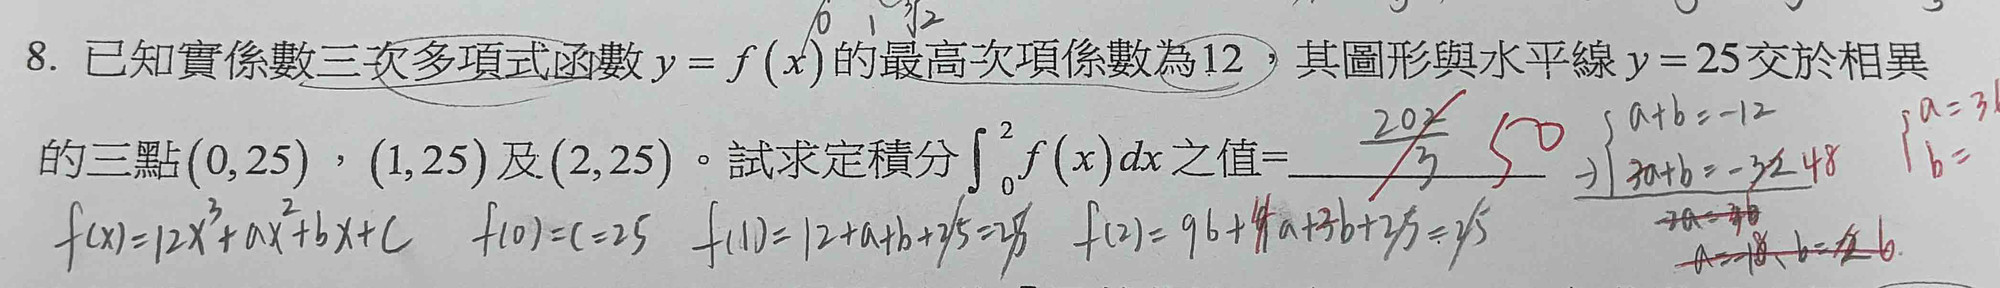 0 1 2
8. 已知實係數三次多項式函數 y = f(x) 的最高次項係數為12，其圖形與水平線 y = 25 交於相異
的三點(0,25)，(1,25)及(2,25)。試求定積分∫₀² f(x)dx 之值=
202/3 50
a+b=-12
3a+b=-32 48
2a=36
a=-18、b= 6.
a=3
b=
f(x)=12x³+ax²+bx+c f(0)=c=25 f(1)=12+a+b+25=25 f(2)=96+4a+2b+25=25